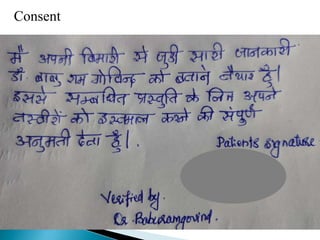 Consent
मैं अपनी बिमारी से जुड़ी सारी जानकारी
डॉ बाबु राम गोविन्द को बताने तैयार हूँ।
इससे सम्बंधित प्रस्तुति के लिए अपने
तस्वीरों को इस्तमाल करने की संपूर्ण
अनुमती देता हूँ।. Patients signature
Verified by.
Dr. Baburamgovind.